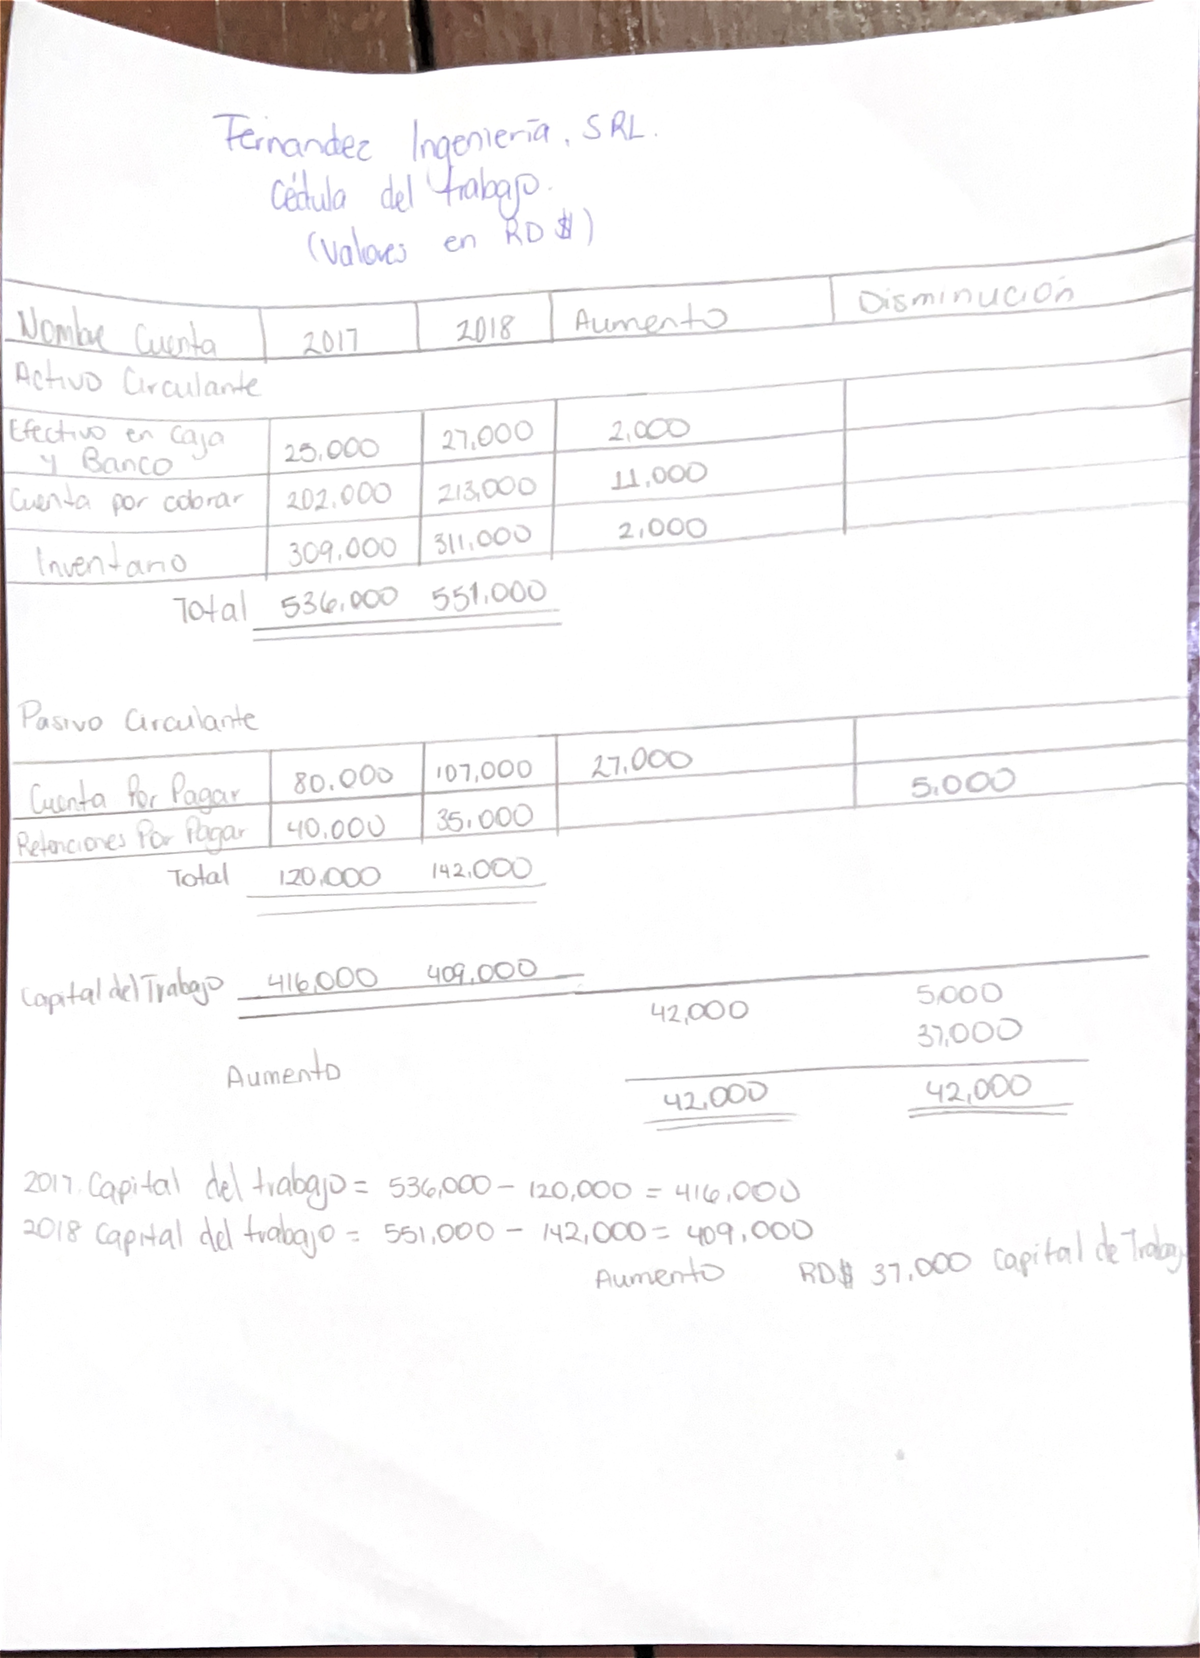 Fernandez Ingeniería, SRL.
Cédula del trabajo.
(Valores en RD$)
Nombre Cuenta 2017 2018 Aumento Disminución
Activo Circulante
Efectivo en Caja
y Banco 25,000 27,000 2,000
Cuenta por cobrar 202,000 213,000 11,000
Inventario 309,000 311,000 2,000
Total 536,000 551,000
Pasivo Circulante
Cuenta Por Pagar 80,000 107,000 27,000
Retenciones Por Pagar 40,000 35,000 5,000
Total 120,000 142,000
Capital del Trabajo 416,000 409,000
42,000 5,000
37,000
Aumento
42,000 42,000
2017. Capital del trabajo = 536,000 - 120,000 = 416,000
2018 Capital del trabajo = 551,000 - 142,000 = 409,000
Aumento RD$ 37,000 Capital de Trabaj